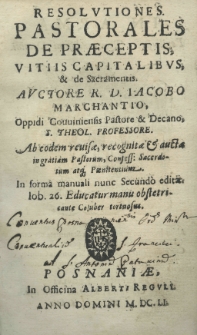 RESOLVTIONES
PASTORALES
DE PRÆCEPTIS,
VITIIS CAPITALIBVS,
& de Sacramentis.
AVCTORE R. D. IACOBO
MARCHANTIO,
Oppidi Couviniensis Pastore & Decano,
S. THEOL. PROFESSORE.
Ab eodem revisæ, recognitæ & auctæ
in gratiam Pastorum, Confess: Sacerdo-
tum atq; Pœnitentium.
In formâ manuali nunc Secundò editæ.
Iob. 26. Educatur manu obstetri-
cante Coluber tortuosus.
Conventus
Conventualium Francisci
Antonii
POSNANIÆ,
In Officina ALBERTI REGVLI.
ANNO DOMINI M.DC.LI.